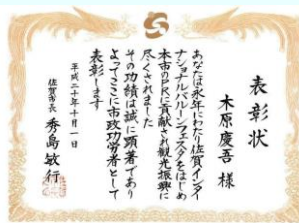 表彰状
木原慶吾 様
あなたは永年にわたり佐賀インター
ナショナルバルーンフェスタをはじめ
本市の発展に貢献され観光振興に
尽くされました
その功績は誠に顕著であり
よってここに市政功労者として
表彰します
平成二十年十月一日
佐賀市長 秀島敏行